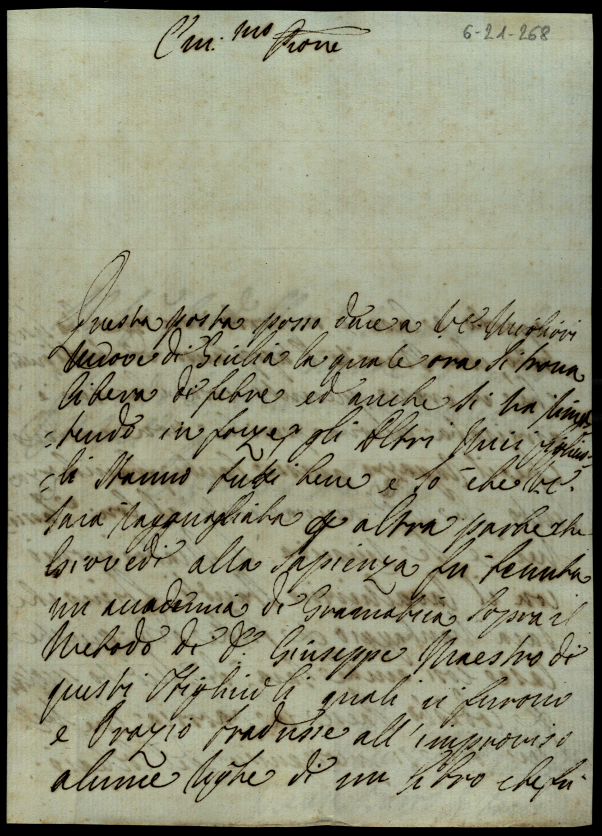 6-21-268
Em.mo Prone
Questa posta posso dare a V.E. Migliori
nuove di Giulia la quale ora si trova
libera di febre ed anche si va
=tendo in forze gli Altri Miei figliuo=
=li stanno tutti bene e so che V.E.
sara raguagliata p altra parte che
Giovedi alla Sapienza fu tenuta
un accademia di Gramatica sopra il
Metodo di D. Giuseppe Maestro di
questi figliuoli quali vi furono
e Orazio tradusse all'improviso
alcune righe di un libro che fu